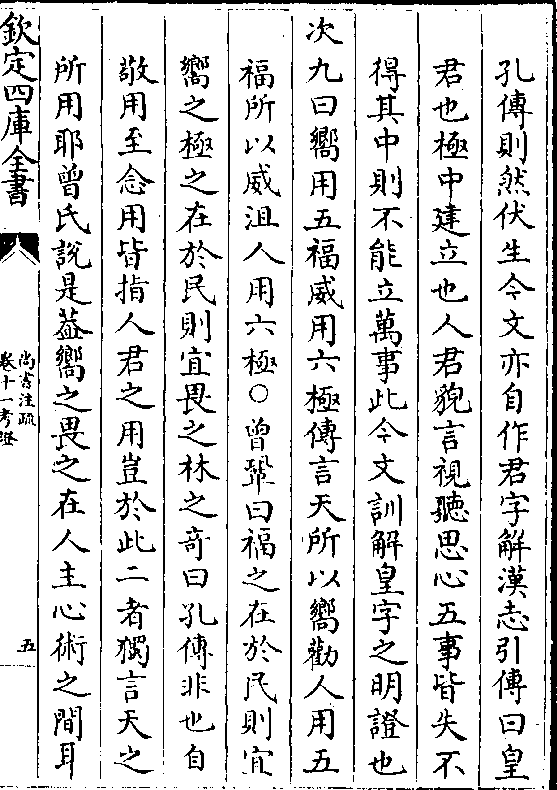 孔傳則然伏生今文亦自作君字解漢志引傳曰皇
君也極中建立也人君貌言視聽思心五事皆失不
得其中則不能立萬事此今文訓解皇字之明證也
次九曰嚮用五福威用六極傳言天所以嚮勸人用五
福所以威沮人用六極○曾鞏曰福之在於民則宜
嚮之極之在於民則宜畏之林之奇曰孔傳非也自
敬用至念用皆指人君之用豈於此二者獨言天之
所用耶曾氏說是葢嚮之畏之在人主心術之間耳
欽定四庫全書
尚書注疏
卷十一考證
五